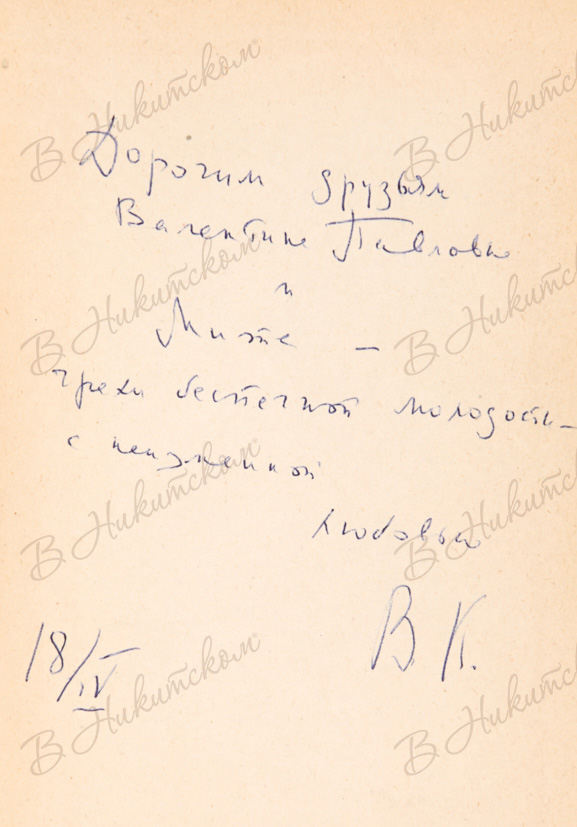 Дорогим друзьям
Валентине Павловне
и
Мите —
грехи беспечной молодости —
с неизменной
любовью
В. К.
18/IV
В Никитском
В Никитском
В Никитском
В Никитском
В Никитском
В Никитском
В Никитском
В Никитском